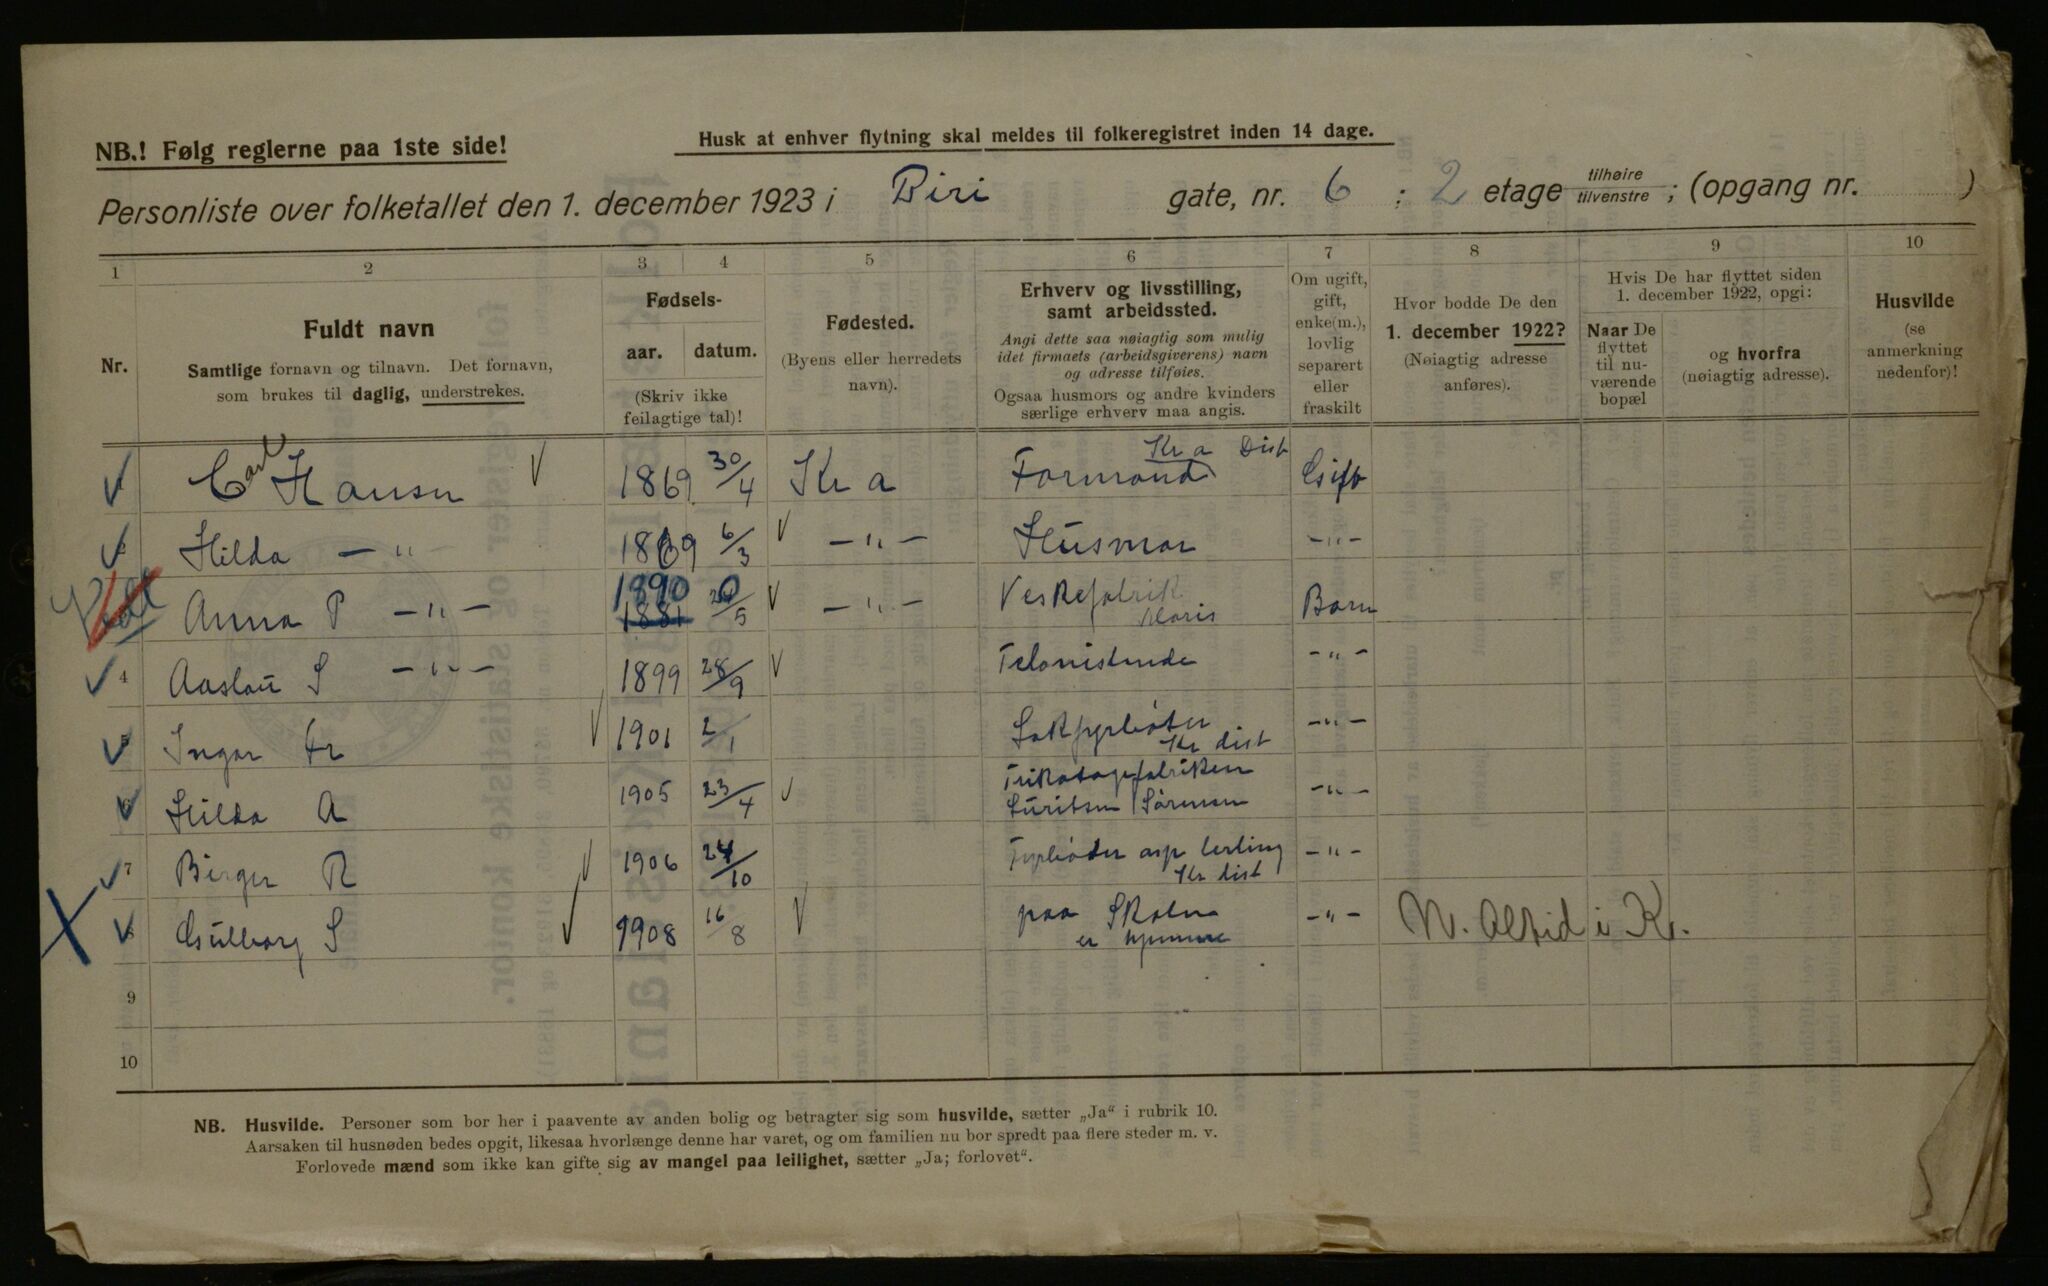 NB.! Følg reglerne paa 1ste side!
Husk at enhver flytning skal meldes til folkeregistret inden 14 dage.
Personliste over folketallet den 1. december 1923 i Biri gate, nr. 6 : 2 etage tilhøire/tilvenstre ; (opgang nr. )
1 2 3 4 5 6 7 8 9 10
Nr.
Fuldt navn
Samtlige fornavn og tilnavn. Det fornavn,
som brukes til daglig, understrekes.
Fødsels-
aar. datum.
(Skriv ikke
feilagtige tal)!
Fødested.
(Byens eller herredets
navn).
Erhverv og livsstilling,
samt arbeidssted.
Angi dette saa nøiagtig som mulig
idet firmaets (arbeidsgiverens) navn
og adresse tilføies.
Ogsaa husmors og andre kvinders
særlige erhverv maa angis.
Om ugift,
gift,
enke(m.),
lovlig
separert
eller
fraskilt
Hvor bodde De den
1. december 1922?
(Nøiagtig adresse
anføres).
Hvis De har flyttet siden
1. december 1922, opgi:
Naar De
flyttet
til nu-
værende
bopæl
og hvorfra
(nøiagtig adresse).
Husvilde
(se
anmerkning
nedenfor)!
Carl Hansen 1869 30/4 Kr a Formand Kr a Dist Gift
Hilda — " — 1869 6/3 — " — Husmor — " —
Anna P — " — 1890 1881 5 — " — Veskefabrik Barn
4 Aaslau S — " — 1899 28/9 — " —
5 Ingar Fr 1901 2/1 Kr dist — " —
6 Hilda A 1905 23/4 Trikotagefabriken — " —
7 Birger R 1906 24/10 Fyrbøder asp lerling Kr dist — " —
8 Gulborg S 1908 16/8 paa Skolen er hjemme — " — N. Altid i Kr.
9
10
NB. Husvilde. Personer som bor her i paavente av anden bolig og betragter sig som husvilde, sætter „Ja“ i rubrik 10.
Aarsaken til husnøden bedes opgit, likesaa hvorlænge denne har varet, og om familien nu bor spredt paa flere steder m. v.
Forlovede mænd som ikke kan gifte sig av mangel paa leilighet, sætter „Ja; forlovet“.